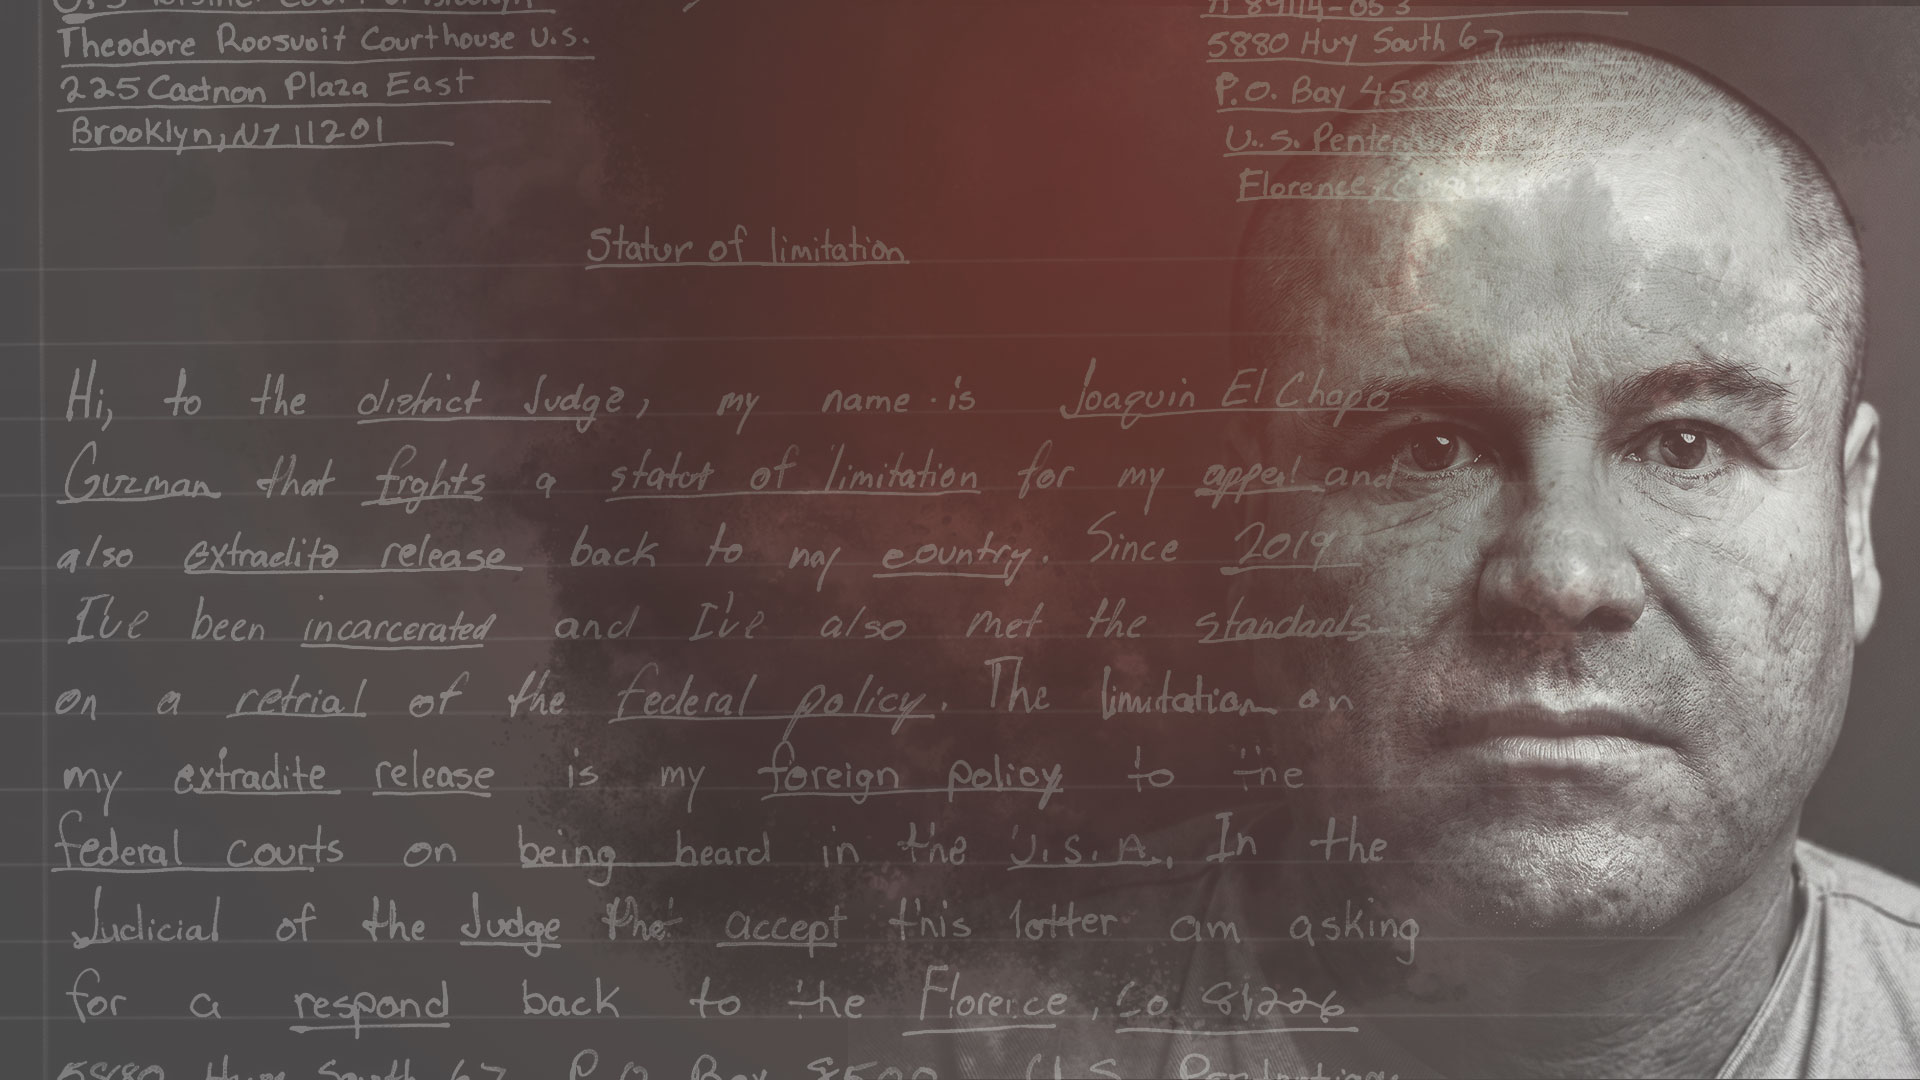 U.S District Court of Brooklyn
Theodore Roosvoit Courthouse U.S.
225 Cadtnon Plaza East
Brooklyn, NY 11201
# 89114-053
5880 Huy South 67
P.O. Bay 4500
U.S. Pentent
Florence,
Statur of limitation
Hi, to the district Judge, my name is Joaquin El Chapo
Guzman that frghts a statut of limitation for my appeal and
also extradite release back to my country. Since 2019
I've been incarcerated and I've also met the standards
on a retrial of the federal policy. The limitation on
my extradite release is my foreign policy to the
federal courts on being heard in the U.S.A. In the
Judicial of the Judge that accept this lotter am asking
for a respond back to the Florence, Co 81226
5880 Huy South 67 P.O Bay 8500 U.S. Pententiary